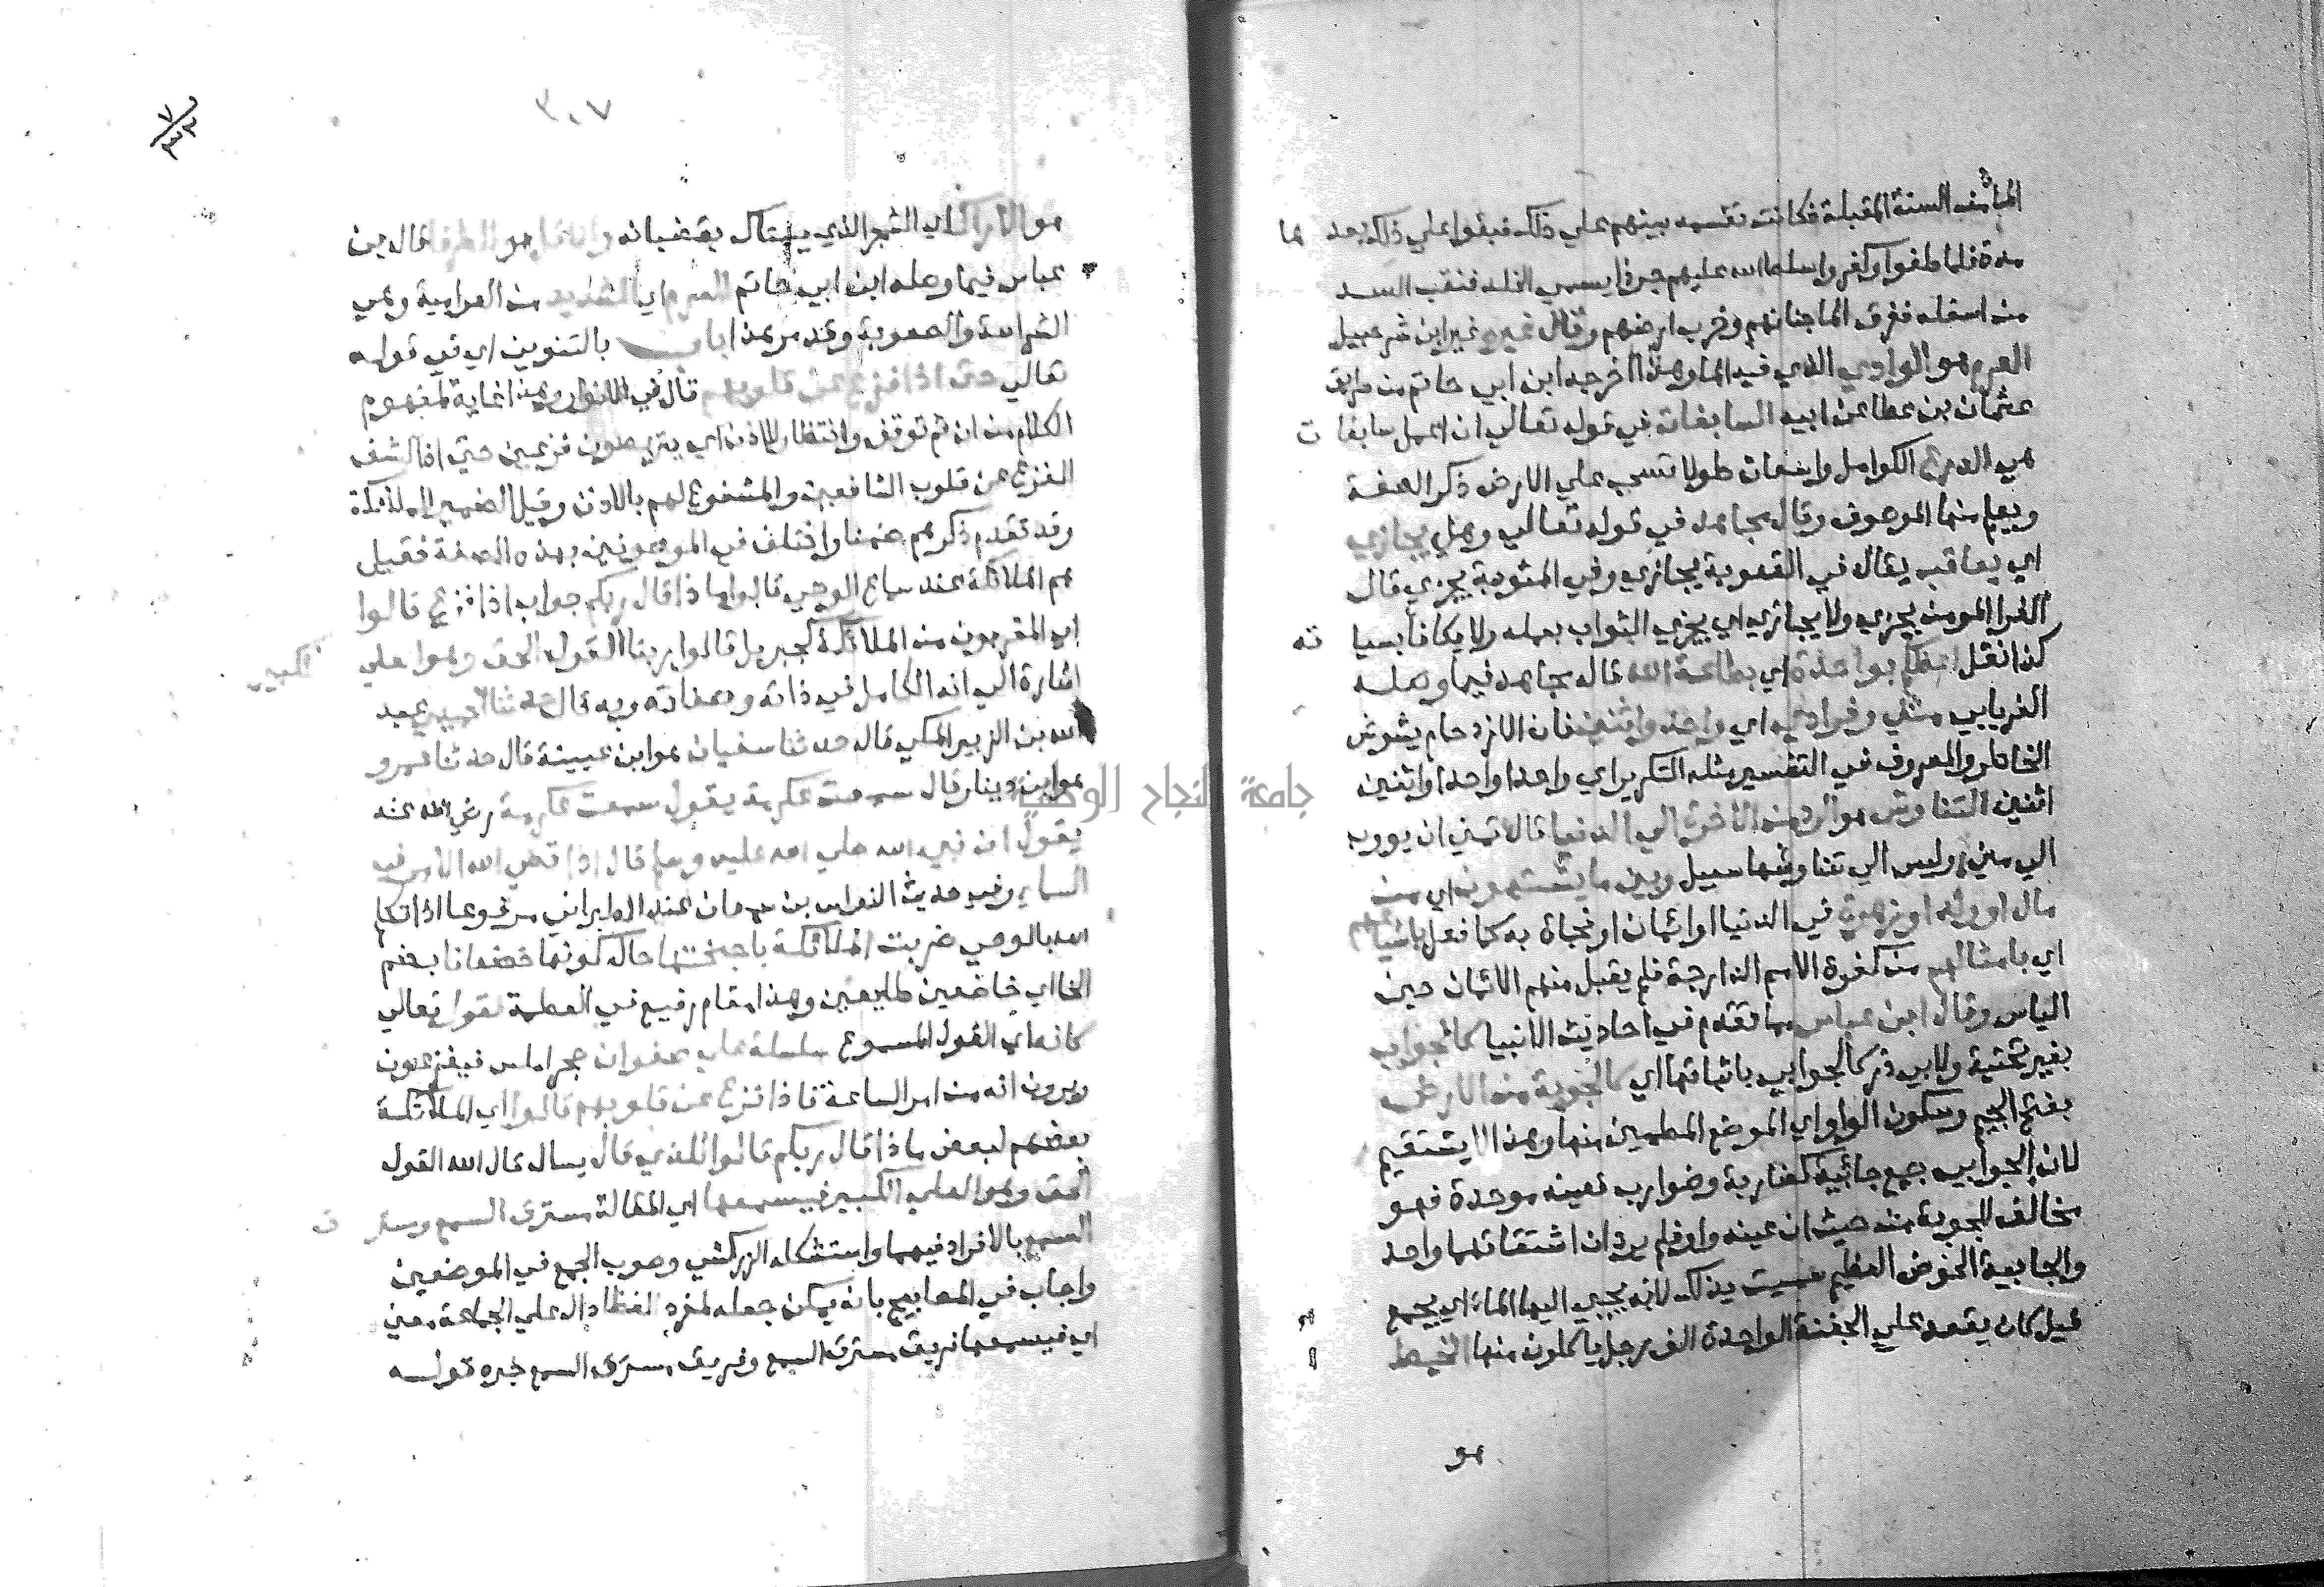 الماء من السنة المقبلة فكانت تقسمه بينهم على ذلك فبقوا علي ذلك بعد بما
مدة فلما طغوا وكفروا سلط الله عليهم جرذا يسمي الخلد فنقب السد
من اسفله فغرق الما جناتهم وخرب ارضهم وقال غيره غير ابن شرحبيل
العرم هو الوادي الذي فيه الما وهذا اخرجه ابن ابي حاتم من طريق
عثمان بن عطا عن ابيه السابغات في قوله تعالي ان اعمل سابغات ت
هي الدروع الكوامل واسعات طولا تسحب علي الارض ذكر الصفة
ويعلم منها الموصوف وقال مجاهد في قوله تعالي وهل يجازي
اي يعاقب يقال في العقوبة يجازي وفي المثوبة يجزي قال
الفرا المومن يجزي ولا يجازي اي يجزي الثواب بعمله ولا يكافأ بسيا ته
كذا نقل اعظكم بواحدة اي بطاعة الله قاله مجاهد فيما وصله
الفريابي مثني وفرادي اي واحد واثنين فان الازدحام يشوش
الخاطر والمعروف في التفسير مثله التكرير اي واحدا واحدا واثنين
اثنين التناوش هو الرد من الاخرة الي الدنيا قال تمني ان يووب
الي مني وليس الي تناوشها سبيل وبين ما يشتهون اي من
مال او ولد او زهرة في الدنيا او ايمان او نجاة به كما فعل باشياعهم
اي بامثالهم من كفرة الامم الدارجة فلم يقبل منهم الايمان حين
الياس وقال ابن عباس مما تقدم في احاديث الانبيا كالجواب
بغير تحتية ولابي ذر كالجوابي باثباتها اي كالجوبة من الارض
بفتح الجيم وسكون الواو اي الموضع المطمين منها وهذا لا يستقيم
لان الجوابي جمع جابية كضاربة وضوارب فعينه موحدة فهو
مخالف للجوبة من حيث ان عينه واو فلم يرد ان اشتقاقهما واحد
والجابية الحوض العظيم سميت بذلك لانه يجبي اليها الما اي يجمع
قيل كان يقعد علي الجفنة الواحدة الف رجل ياكلون منها الخمط
هو
٣٠٧
هو الاراك اي الشجر الذي يستاك بقضبانه والاثل هو الطرفا قال ابن
عباس فيما وصله ابن ابي حاتم العرم اي الشديد من العرامة وهي
الشراسة والصعوبة وقد مر هذا باب بالتنوين اي في قوله
تعالي حتي اذا فزع عن قلوبهم قال في الانوار وهذا غاية لمفهوم
الكلام من ان ثم توقف وانتظار للاذن اي يتربصون فزعين حتي اذا كشف
الفزع عن قلوب الشافعين والمشفوع لهم بالاذن وقيل الضمير للملائكة
وقد تقدم ذكرهم ضمنا واختلف في الموصوفين بهذه الصفة فقيل
هم الملائكة عند سماع الوحي قالوا ماذا قال ربكم جواب اذا فزع قالوا
اي المقربون من الملائكة كجبريل قالوا ربنا القول الحق وهو العلي الكبير
اشارة الي انه الكامل في ذاته وصفاته وبه قال حدثنا الحميدي عبد
الله بن الزبير المكي قال حدثنا سفيان هو ابن عيينة قال حدثنا عمرو
هو ابن دينار قال سمعت عكرمة يقول سمعت عكرمة رضي الله عنه
يقول ان نبي الله صلي الله عليه وسلم قال اذا قضي الله الامر في
السما وفي حديث النواس بن سمعان عند الطبراني مرفوعا اذا تكلم
الله بالوحي ضربت الملائكة باجنحتها حال كونها خضعانا بضم
الخا اي خاضعين طايعين وهذا مقام رفيع في العظمة لقوله تعالي
كانه اي القول المسموع سلسلة علي صفوان حجر املس فيفزعون
ويرون انه من امر الساعة فاذا فزع عن قلوبهم قالوا اي الملائكة
بعضهم لبعض ماذا قال ربكم قالوا للذي قال يسال قال الله القول
الحق وهو العلي الكبير فيسمعها اي المقالة مسترق السمع ومستر ق
السمع بالافراد فيهما واستشكله الزركشي وصوب الجمع في الموضعين
واجاب في المصابيح بانه يمكن جعله لمفرد لفظا دال علي الجماعة معني
اي فيسمعها فريق مسترق السمع وفريق مسترق السمع خبره قوله
جامعة النجاح الوطنية